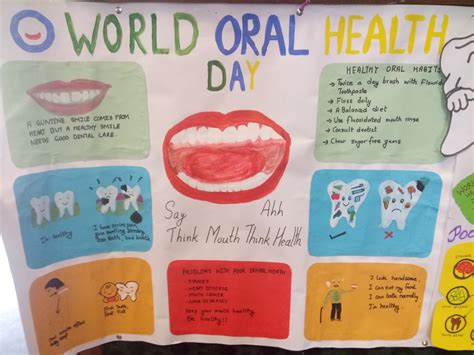 WORLD ORAL HEALTH
DAY
A GUNIENE SMILE COMES FROM
HEART BUT A HEALTHY SMILE
NEEDS GOOD DENTAL CARE.
HEALTHY ORAL HABITS
→ Twice a day brush with
Toothpaste
→ Floss daily
→ A Balanced diet
→ Use fluoridated mouth rinse
→ Consult dentist
→ Chew sugar free gums
Say Ahh
Think Mouth Think Health
I'm healthy
I have
PROBLEMS WITH POOR DENTAL HEALTH
- HEART DISEASE
- MOUTH CANCER
- LUNG DISEASES
Keep your mouth healthy
Be healthy!!
I look handsome
I can eat my food
I can talk normally
I'm healthy